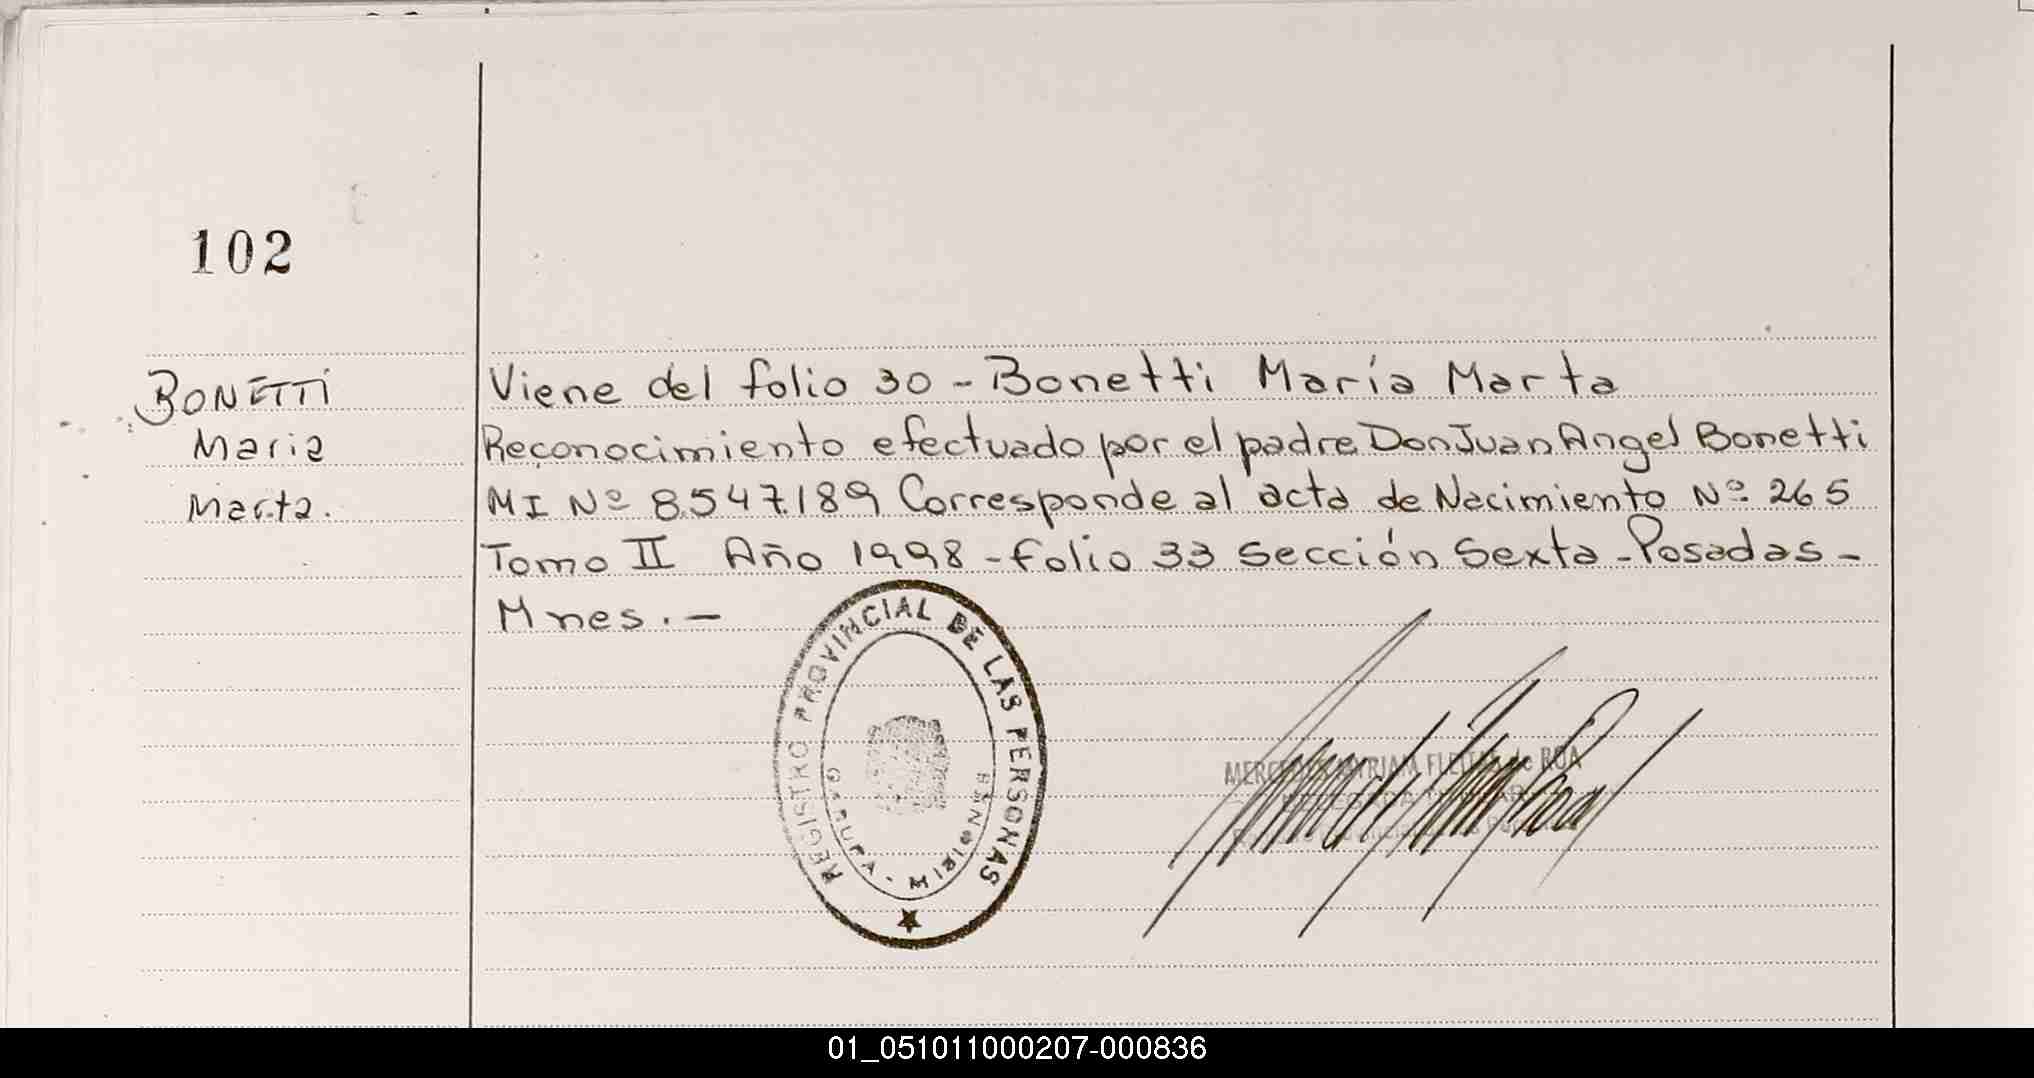 102
BONETTI
Maria
Marta.
Viene del folio 30 - Bonetti María Marta
Reconocimiento efectuado por el padre Don Juan Angel Bonetti
MI Nº 8.547.189 Corresponde al acta de Nacimiento Nº 265
Tomo II Año 1998 - folio 33 Sección Sexta - Posadas -
Mnes. -
REGISTRO PROVINCIAL DE LAS PERSONAS
GARUPA - MISIONES
MYRIAM de ROA
01_051011000207-000836